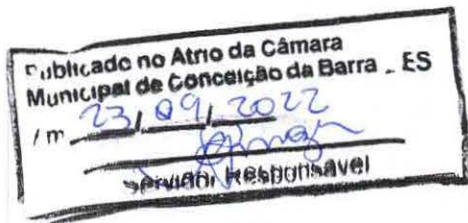 Publicado no Atrio da Câmara
Municipal de Conceição da Barra - ES
/m 23/09/2022
Servidor Responsável